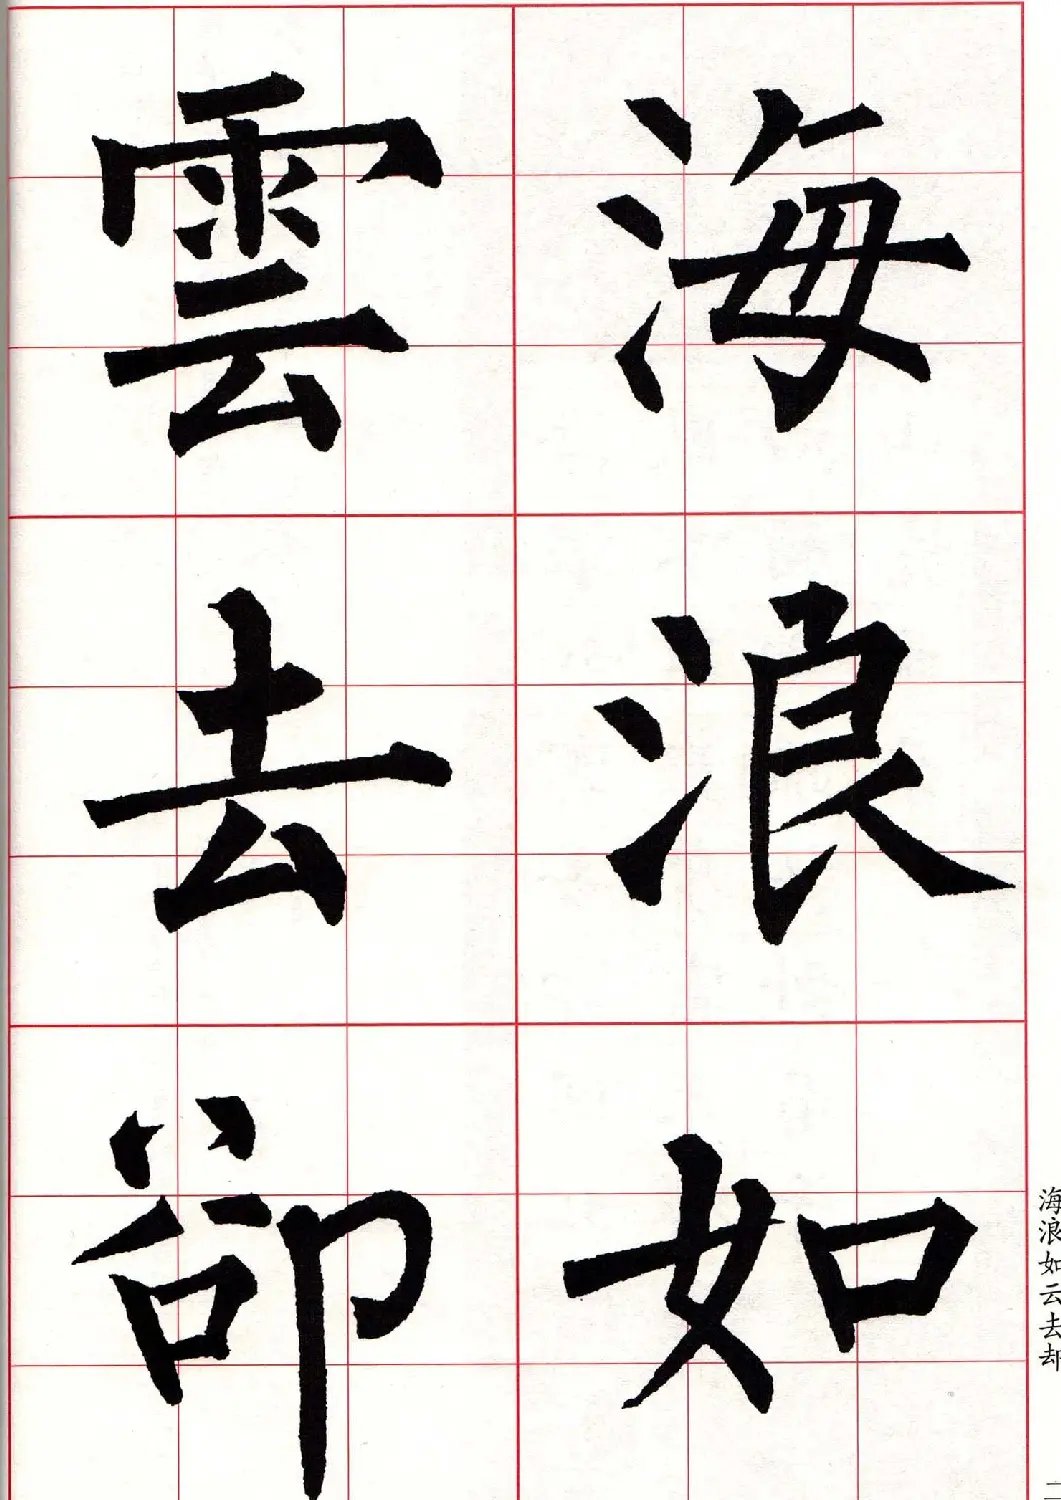 海浪如
雲去卻
海浪如云去却
二